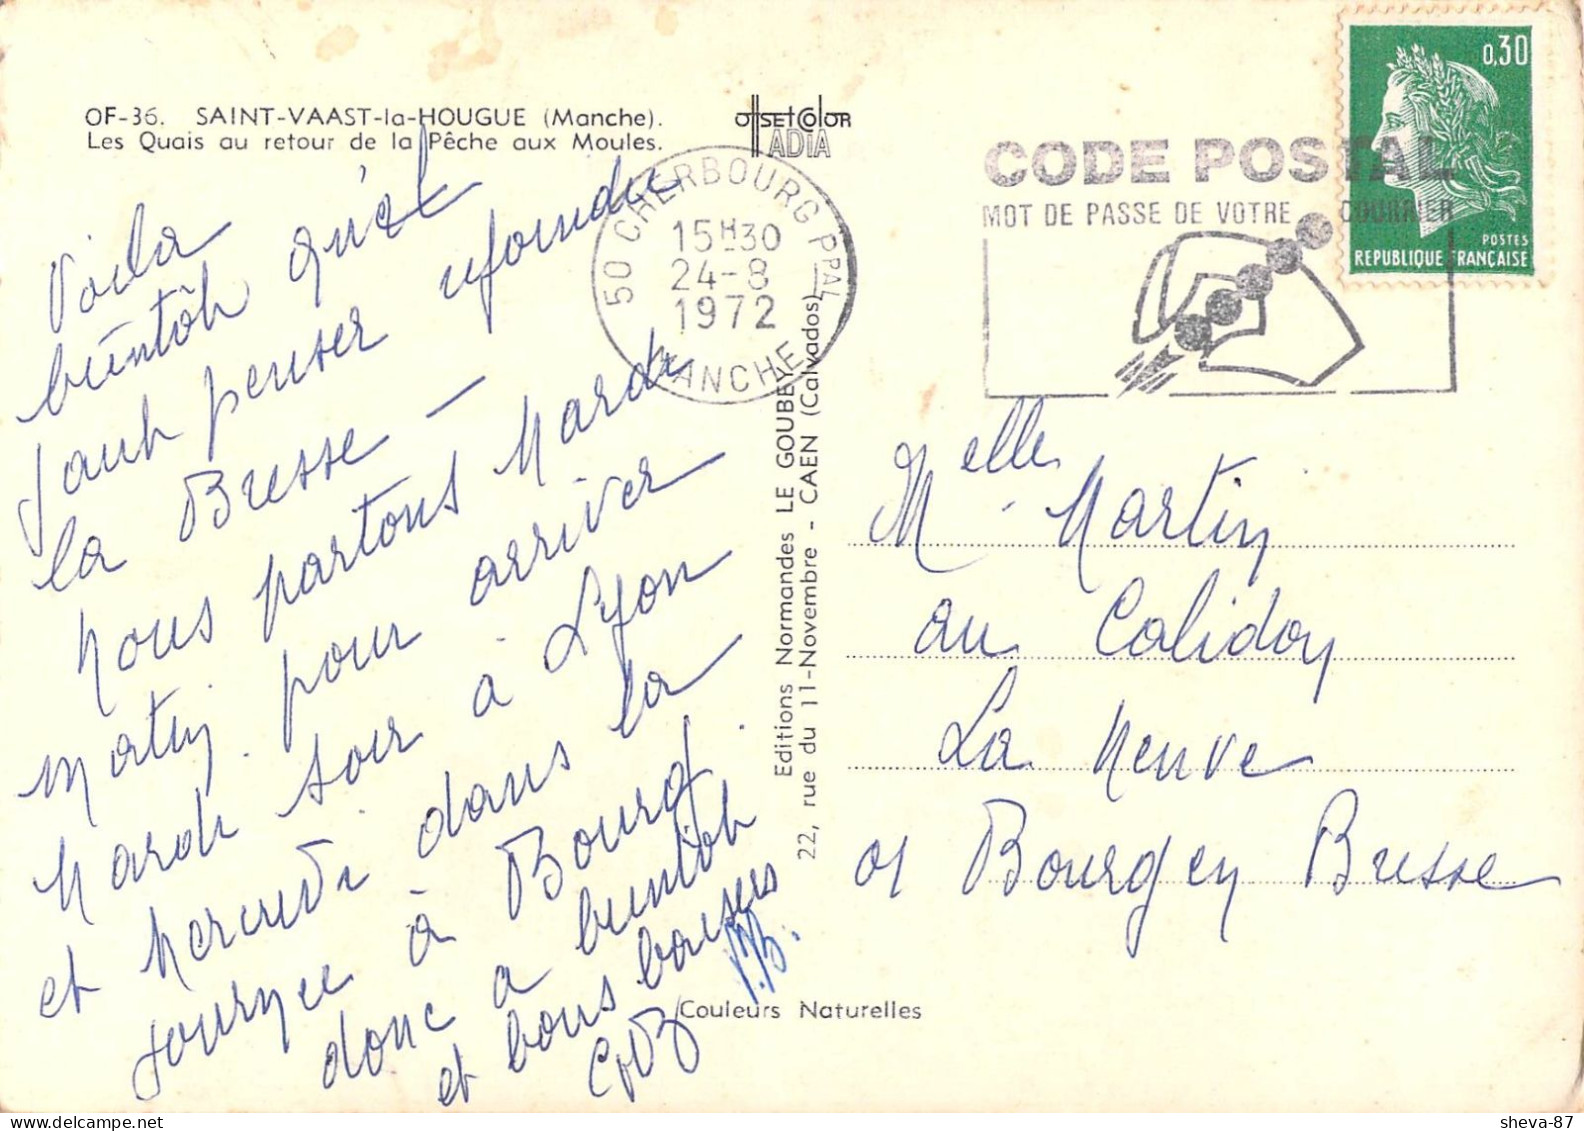 OF-36. SAINT-VAAST-la-HOUGUE (Manche).
Les Quais au retour de la Pêche aux Moules.
OffSET COlOR
IADIA
50 CHERBOURG PPAL
15H30
24-8
1972
MANCHE
CODE POSTAL
MOT DE PASSE DE VOTRE COURRIER
0,30
POSTES
REPUBLIQUE FRANÇAISE
Voila
bientôt qu'il
faut penser rejoindre
la Bresse —
Nous partons Mardi
matin pour arriver
Mardi soir à Lyon
et Mercredi dans la
journée à Bourg.
donc a bientôt
et bons baisers
Editions Normandes LE GOUBEY
22, rue du 11-Novembre - CAEN (Calvados)
Melle Martin
au Calidon
La Neuve
01 Bourg en Bresse
Couleurs Naturelles
sheva-87